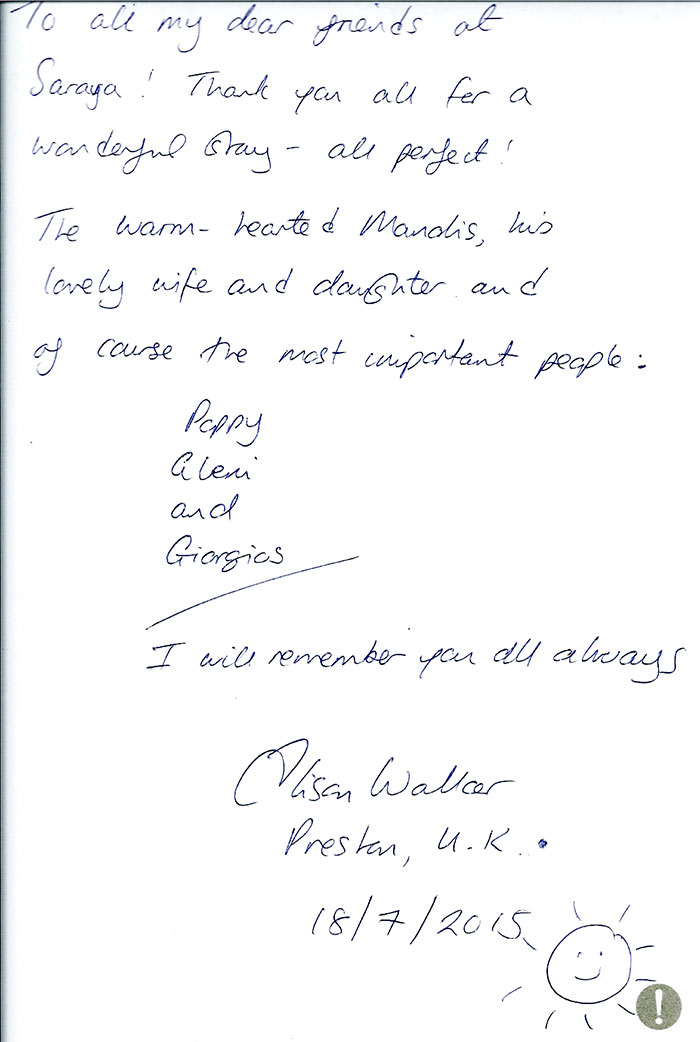 To all my dear friends at
Saraya! Thank you all for a
wonderful stay - all perfect!
The warm-hearted Manolis, his
lovely wife and daughter and
of course the most important people:
Poppy
Eleni
and
Giorgios
I will remember you all always
Alison Walker
Preston, U.K.
18/7/2015
!